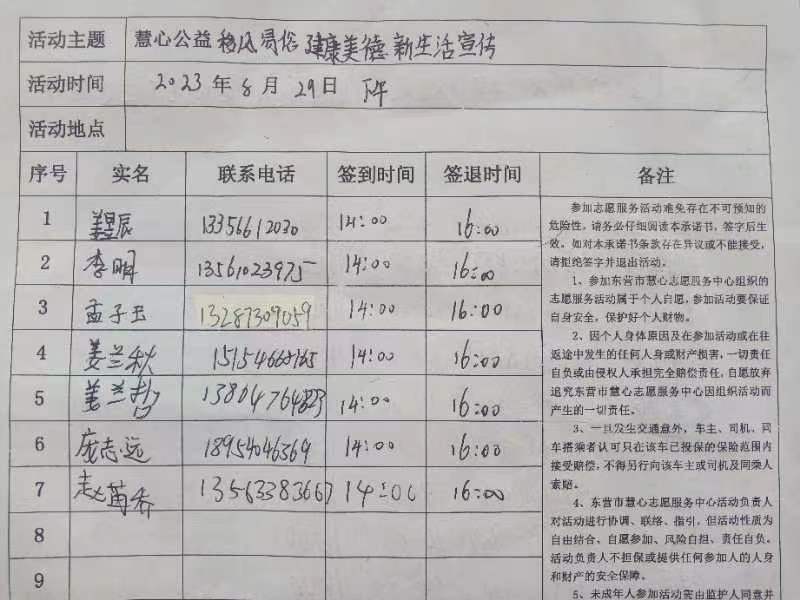 活动主题 慧心公益 移风易俗 健康美德 新生活宣传
活动时间 2023年8月29日 下午
活动地点
序号 实名 联系电话 签到时间 签退时间 备注
1 13356612030 14:00 16:00
2 李明 13561023975 14:00 16:00
3 孟子玉 13287309059 14:00 16:00
4 姜兰秋 15154668165 14:00 16:00
5 姜兰哲 14:00 16:00
6 庞志远 18954046369 14:00 16:00
7 赵菊香 13563383667 14:00 16:00
8
9
参加志愿服务活动难免存在不可预知的
危险性，请务必仔细阅读本承诺书，签字后生
效。如对本承诺书条款存在异议或不能接受，
请拒绝签字并退出活动。
1、参加东营市慧心志愿服务中心组织的
志愿服务活动属于个人自愿，参加活动要保证
自身安全，保护好个人财物。
2、因个人身体原因及在参加活动或在往
返途中发生的任何人身或财产损害，一切责任
自负或由侵权人承担完全赔偿责任，自愿放弃
追究东营市慧心志愿服务中心因组织活动而
产生的一切责任。
3、一旦发生交通意外，车主、司机、同
车搭乘者认可只在该车已投保的保险范围内
接受赔偿，不得另行向该车主或司机及同乘人
索赔。
4、东营市慧心志愿服务中心活动负责人
对活动进行协调、联络、指引，但活动性质为
自由结合、自愿参加、风险自担、责任自负。
活动负责人不担保或提供任何参加人的人身
和财产的安全保障。
5、未成年人参加活动需由监护人同意并